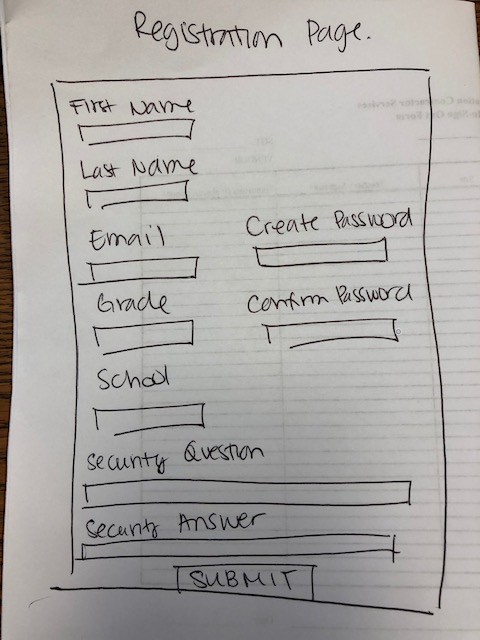 Registration Page.
First Name
Last Name
Email
Create Password
Grade
Confirm Password
School
Security Question
Security Answer
SUBMIT